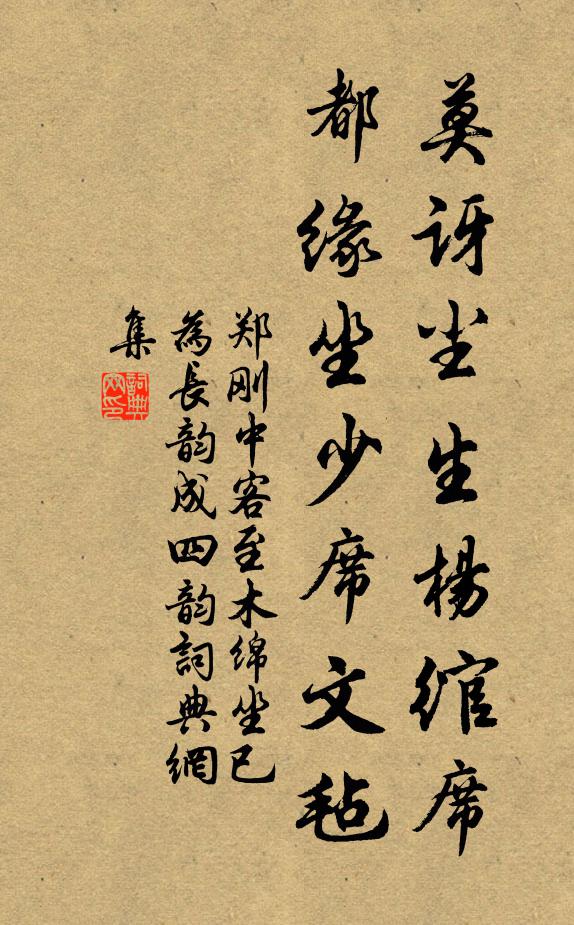 莫讶尘生杨绾席
都缘坐少席文毡
郑刚中客至木绵坐已
為長韵成四韵詞典網
集
詞典網印